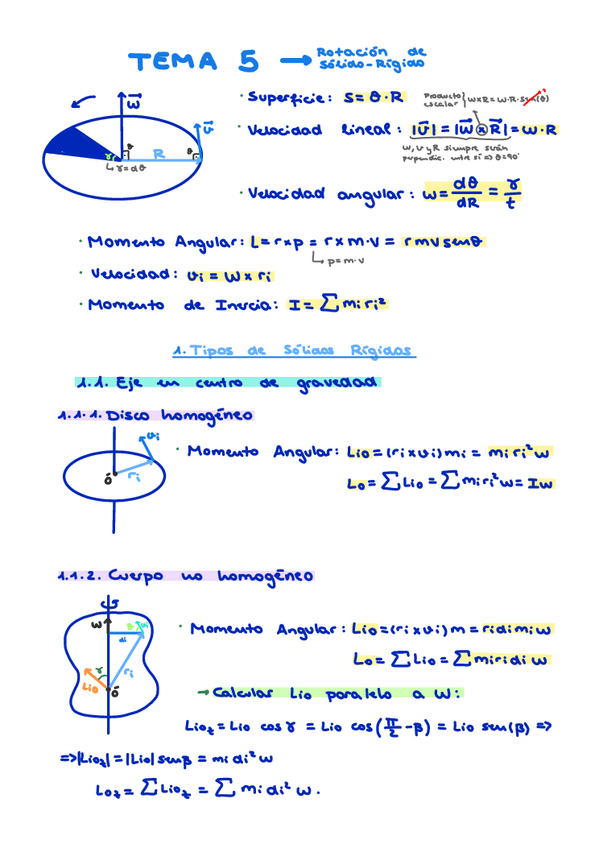 TEMA 5 → Rotación de
Sólido-Rígido
· Superficie: S = θ · R
Producto escalar } W x R = W · R · sen(θ)
· Velocidad lineal: |v⃗| = |w⃗ x R⃗| = w · R
W, V y R siempre serán
perpendic. entre sí => θ=90°
· Velocidad angular: w = dθ/dR = γ/t
w⃗
v⃗
R
γ = dθ
· Momento Angular: L = r x p = r x m · v = r m v sen θ
p = m · v
· Velocidad: vi = w x ri
· Momento de Inercia: I = ∑ mi ri²
1. Tipos de Sólidos Rígidos
1.1. Eje en centro de gravedad
1.1.1. Disco homogéneo
vi
ri
O
· Momento Angular: Lio = (ri x vi) mi = mi ri² w
Lo = ∑ Lio = ∑ mi ri² w = I w
1.1.2. Cuerpo no homogéneo
w
di
ri
γ
Lio
O
· Momento Angular: Lio = (ri x vi) m = ri di mi w
Lo = ∑ Lio = ∑ mi ri di w
→ Calcular Lio paralelo a W:
Lioz = Lio cos γ = Lio cos (π/2 - β) = Lio sen(β) =>
=> |Lioz| = |Lio| sen β = mi di² w
Loz = ∑ Lioz = ∑ mi di² w.